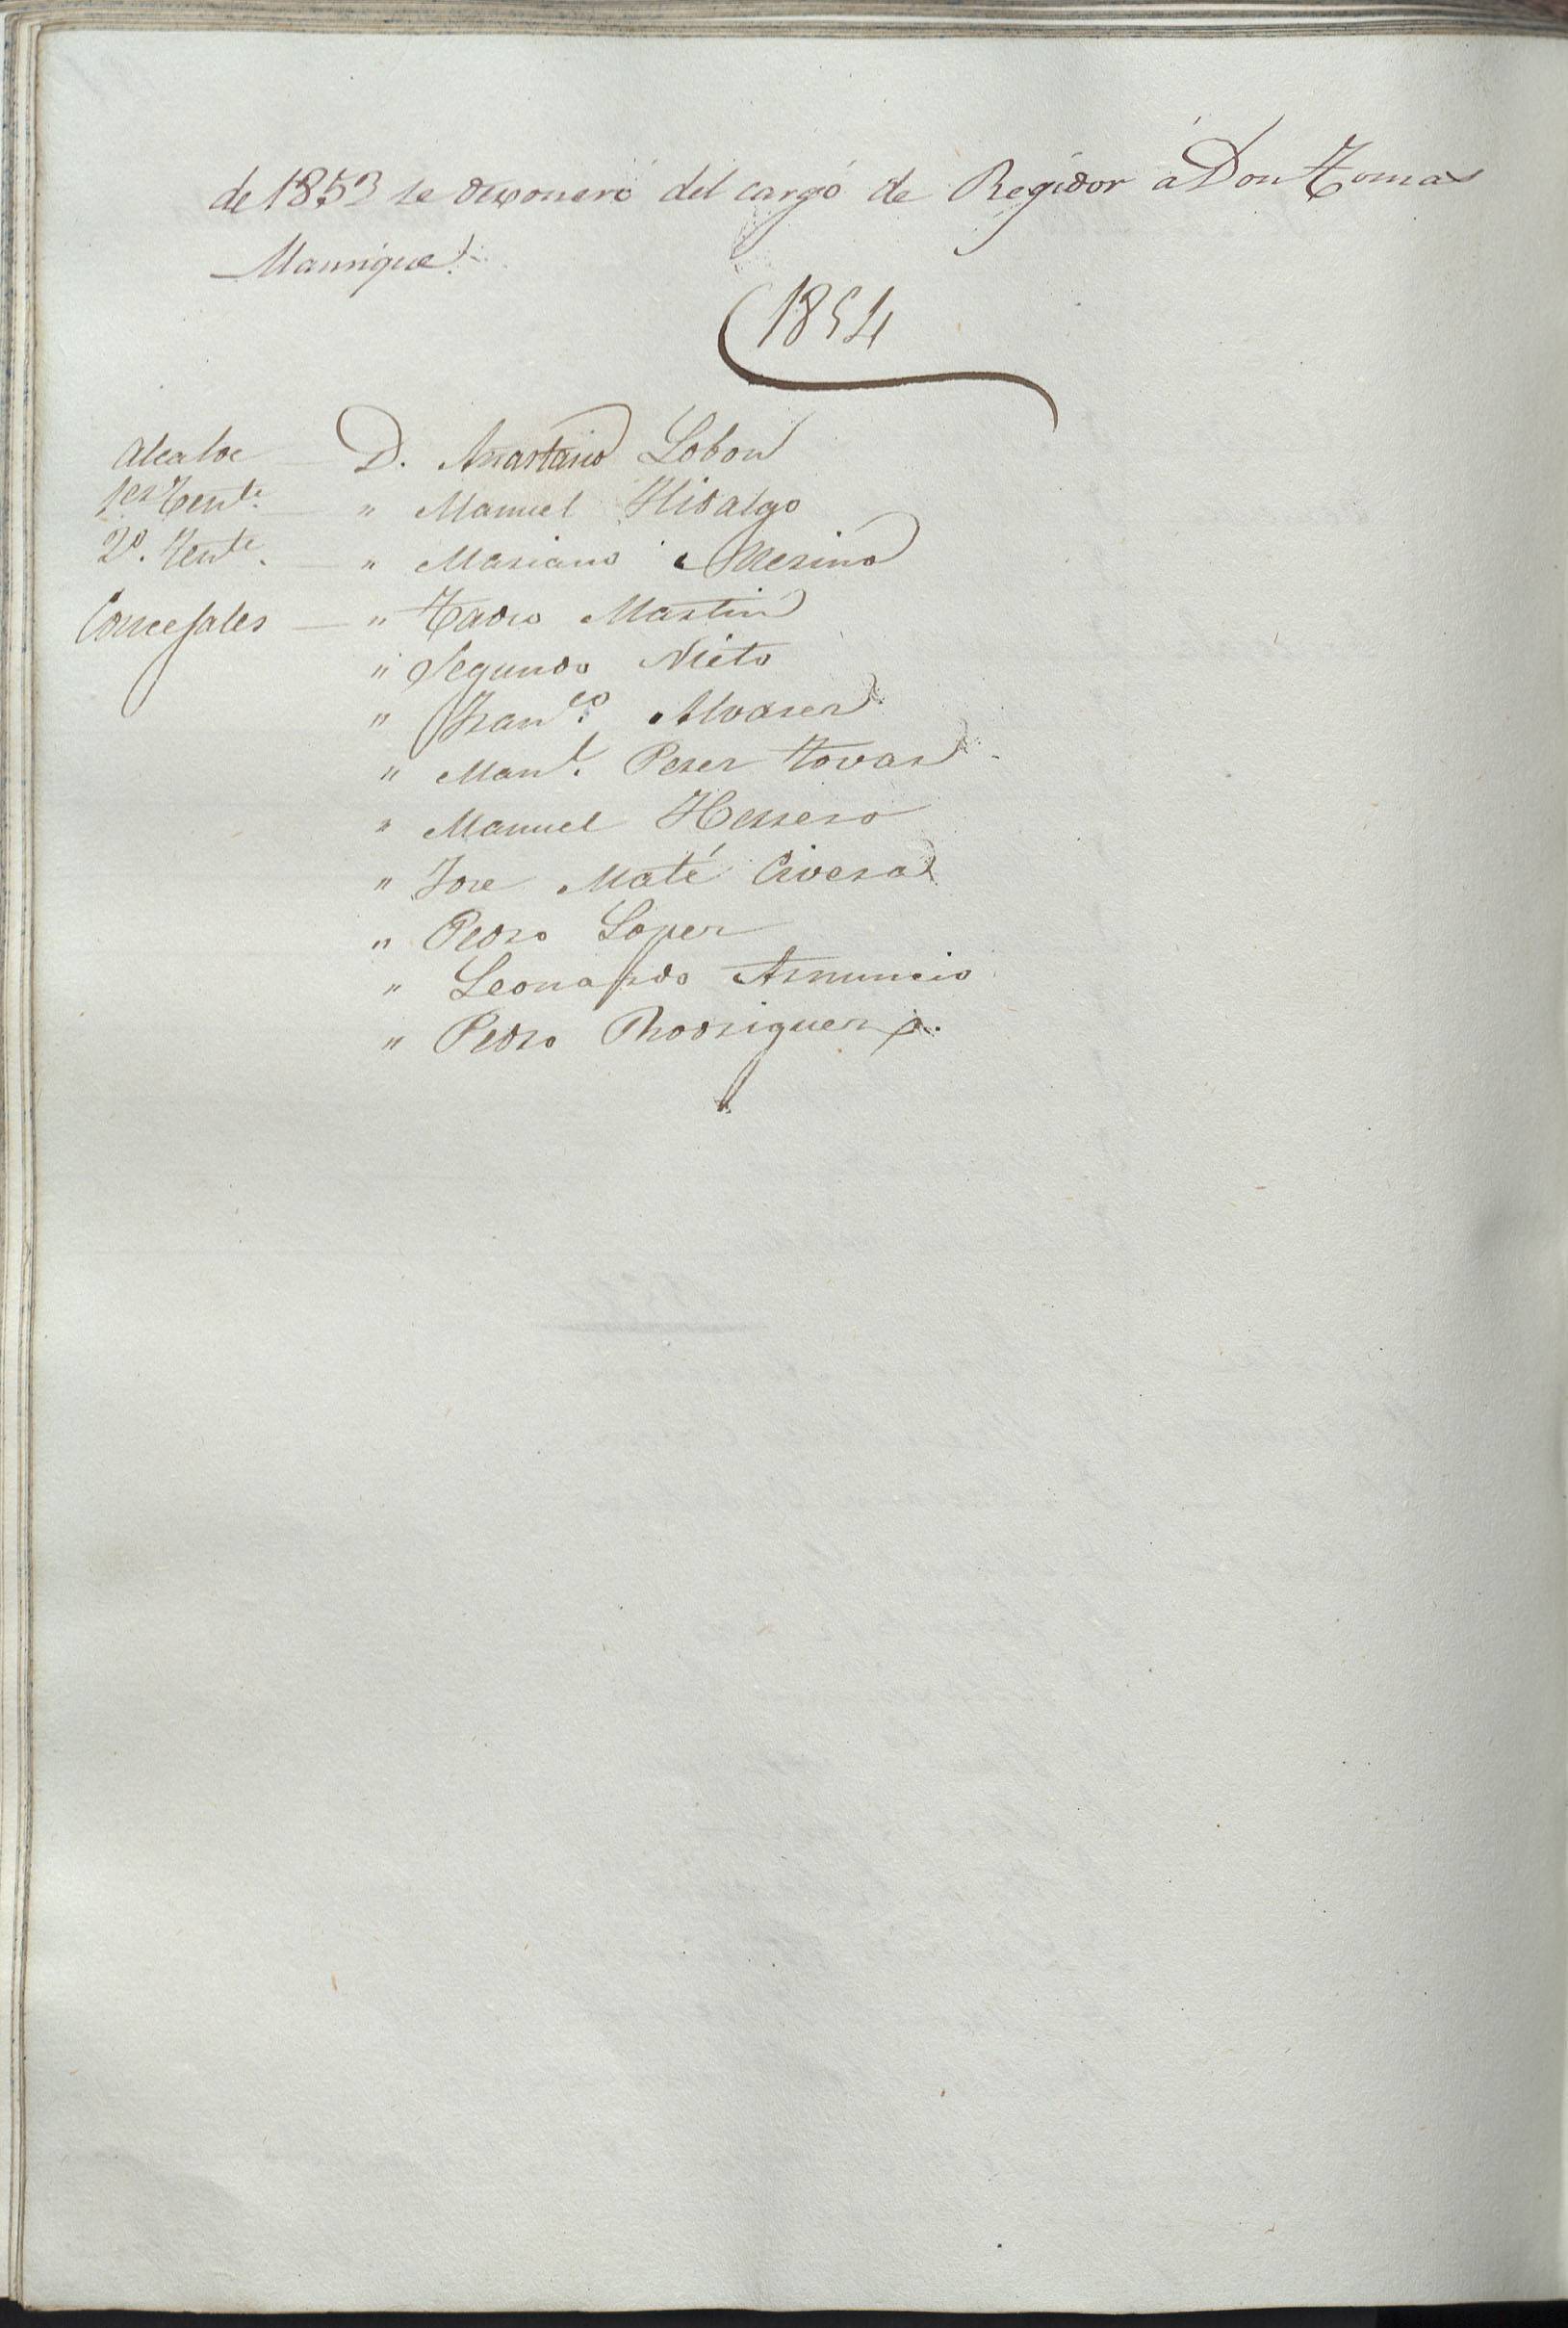 de 1853 se exoneró del cargo de Regidor á Don Tomas
Manrique.
1854
Alcalde — D. Anastasio Lobon
1er Tente. — " Manuel Hidalgo
2º. Tente. — " Mariano Merino
Concejales — " Tadeo Martin
" Segundo Nieto
" Franco. Alvarez
" Manl. Perez Tovar
" Manuel Herrero
" Jose Maté Civera
" Pedro Lopez
" Leonardo Asnuncio
" Pedro Rodriguez